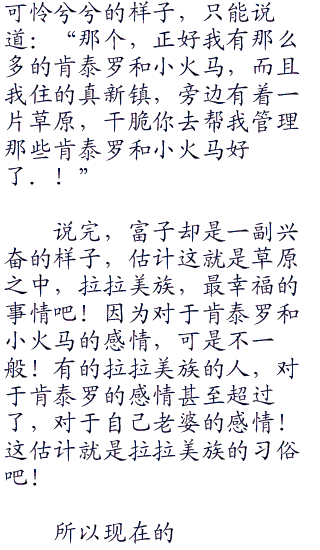 可怜兮兮的样子，只能说
道：“那个，正好我有那么
多的肯泰罗和小火马，而且
我住的真新镇，旁边有着一
片草原，干脆你去帮我管理
那些肯泰罗和小火马好
了．！”
说完，富子却是一副兴
奋的样子，估计这就是草原
之中，拉拉美族，最幸福的
事情吧！因为对于肯泰罗和
小火马的感情，可是不一
般！有的拉拉美族的人，对
于肯泰罗的感情甚至超过
了，对于自己老婆的感情！
这估计就是拉拉美族的习俗
吧！
所以现在的